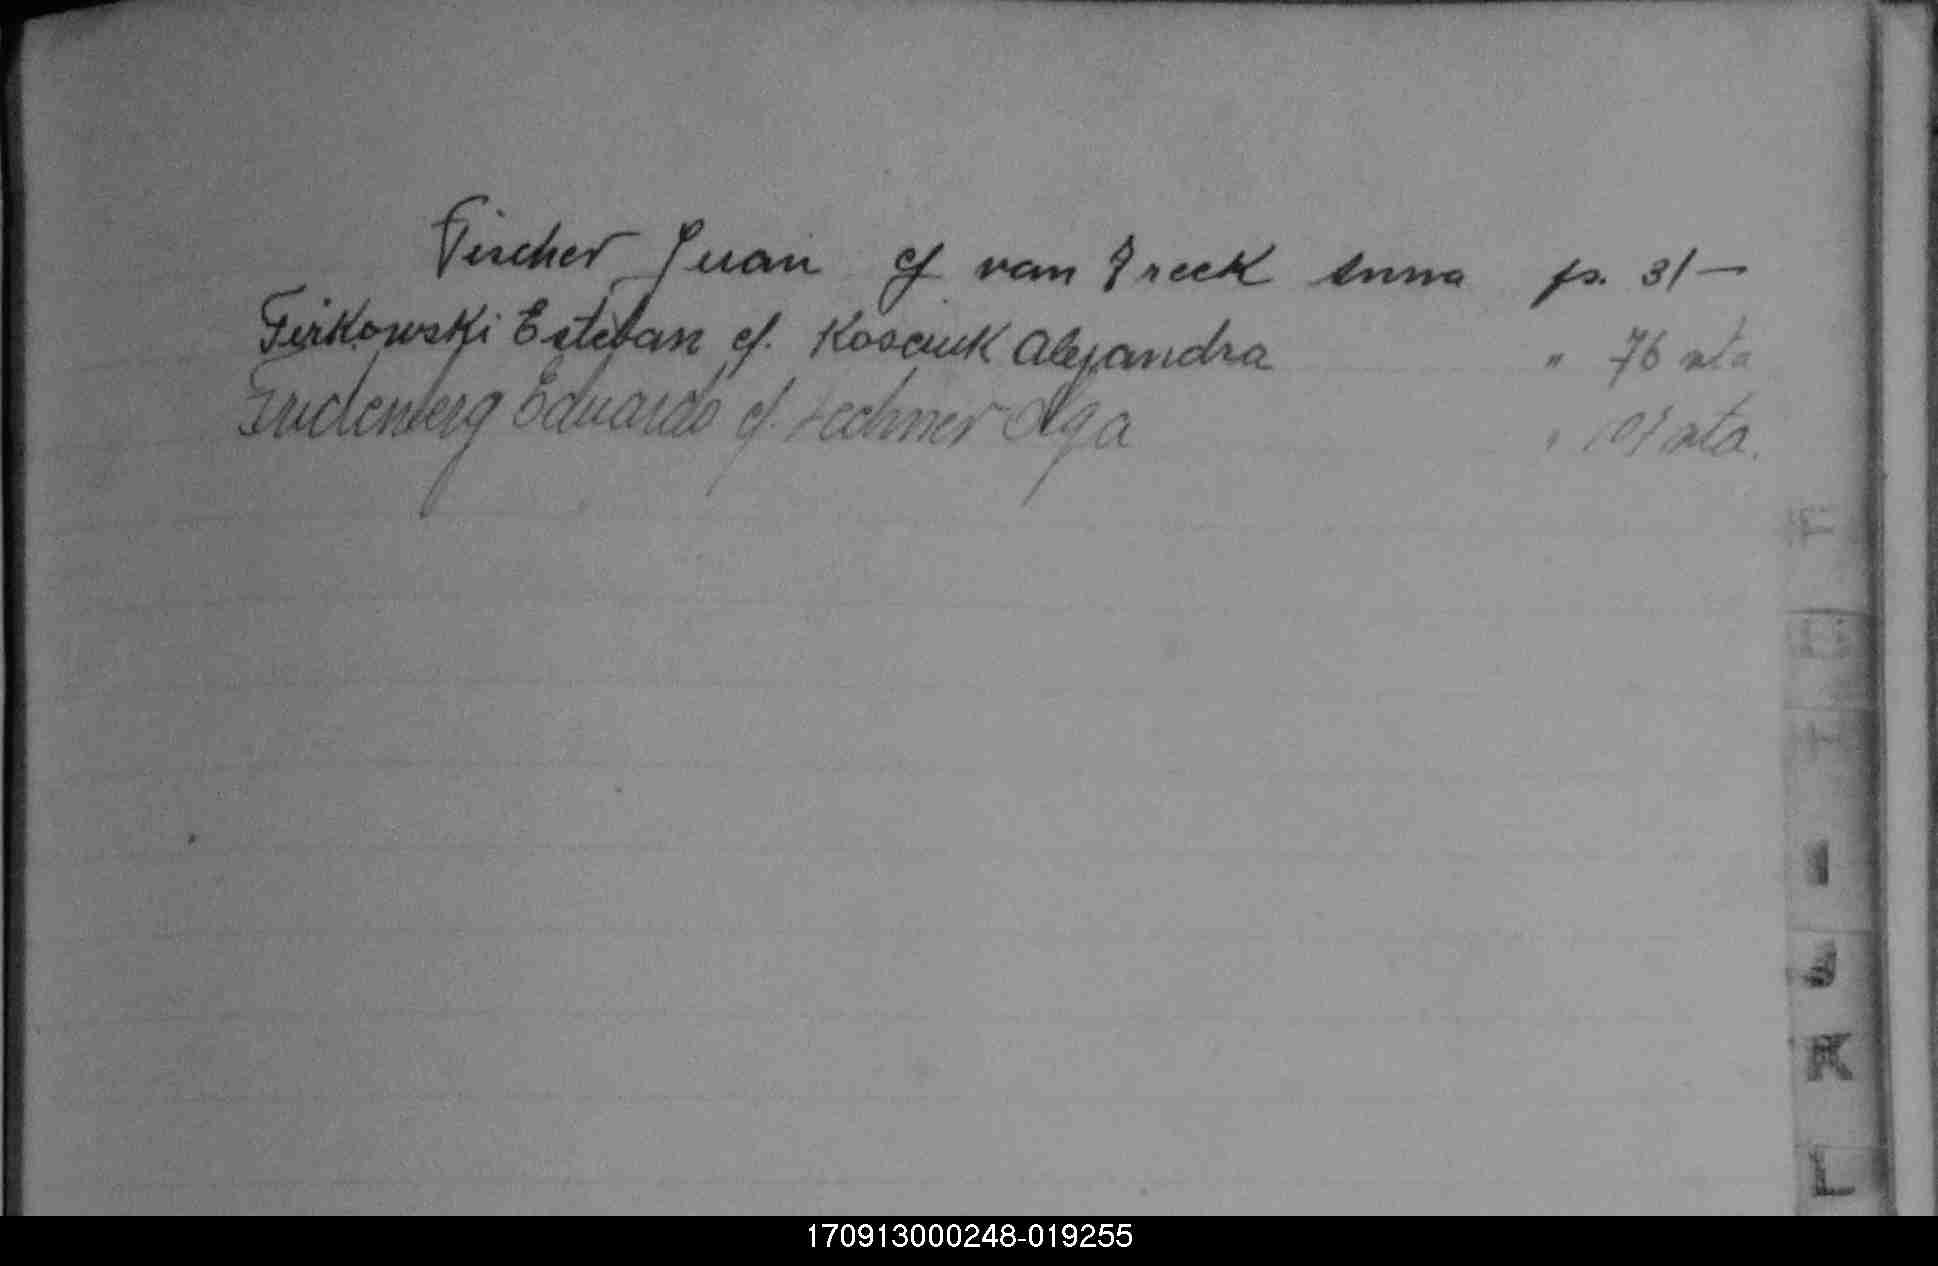 Fischer Juan cf van Freek Anna ps. 31 —
Firkowski Esteban cf. Kosciuk Alejandra " 76 vta
Eduardo cf. Lechner Olga " vta.
F
I
J
K
L
170913000248-019255